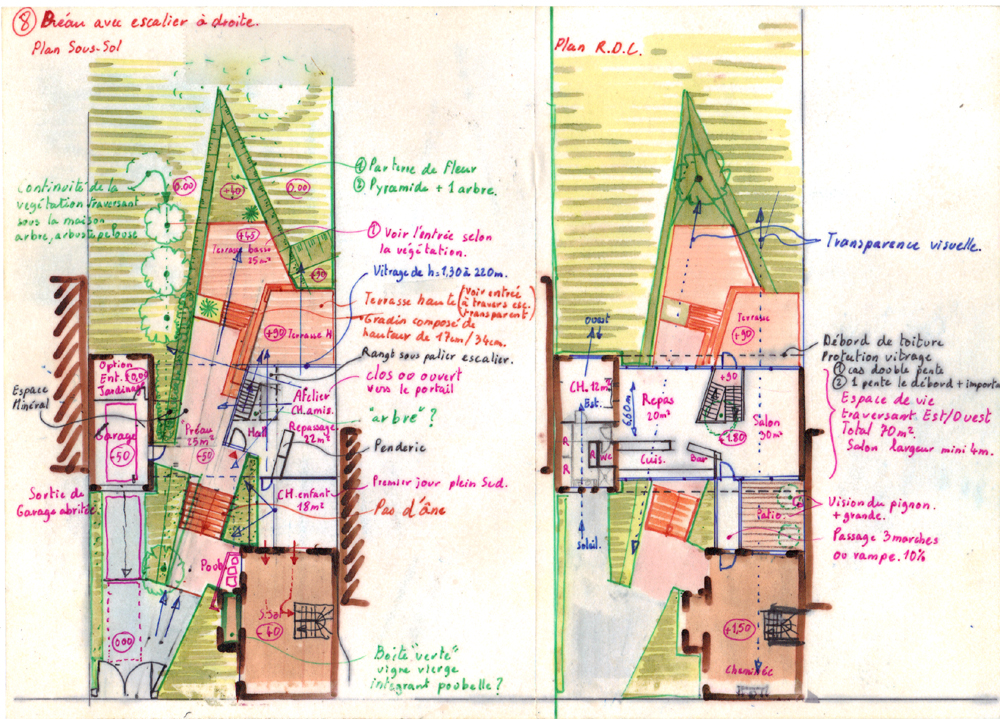 8 Préau avec escalier à droite.
Plan Sous-Sol
① Parterre de Fleur
② Pyramide + 1 arbre.
Continuité de la
végétation traversant
sous la maison
arbre, arbuste pelouse
0.00
+40
0.00
① Voir l'entrée selon
la végétation.
+45
Terrasse basse
25m²
+90
Vitrage de h=1,30 à 220m.
Terrasse haute (Voir entrée
à travers esc.
transparent)
Gradin composé de
hauteur de 17cm/34cm.
+90
Terrasse H
Rangt sous palier escalier.
Clos ou ouvert
vers le portail
"arbre"?
Option
Ent. +0,00
Jardinage
Espace
Minéral
Atelier
CH.amis.
Repassage
22m²
Hall
Penderie
Garage
+50
Préau
25m²
+50
Sortie de
Garage abritée
CH.enfant
18m²
Premier jour plein Sud.
Pas d'âne
Poub.
S.Sol
-40
000
Boite "verte"
vigne vierge
intégrant poubelle?
Plan R.D.C.
Transparence visuelle.
Ouest
Terrasse
+90
Débord de toiture
Protection vitrage
① cas double pente
② 1 pente le débord + importa
Espace de vie
traversant Est/Ouest
Total 70m²
Salon largeur mini 4m.
CH.12m²
Est.
6,60m
Repas
20m²
+90
+1.80
Salon
30m²
R
R
R
WC
Cuis.
Bar
Patio
Vision du pignon
+ grande.
Passage 3 marches
ou rampe. 10%
Soleil.
+1,50
Cheminée